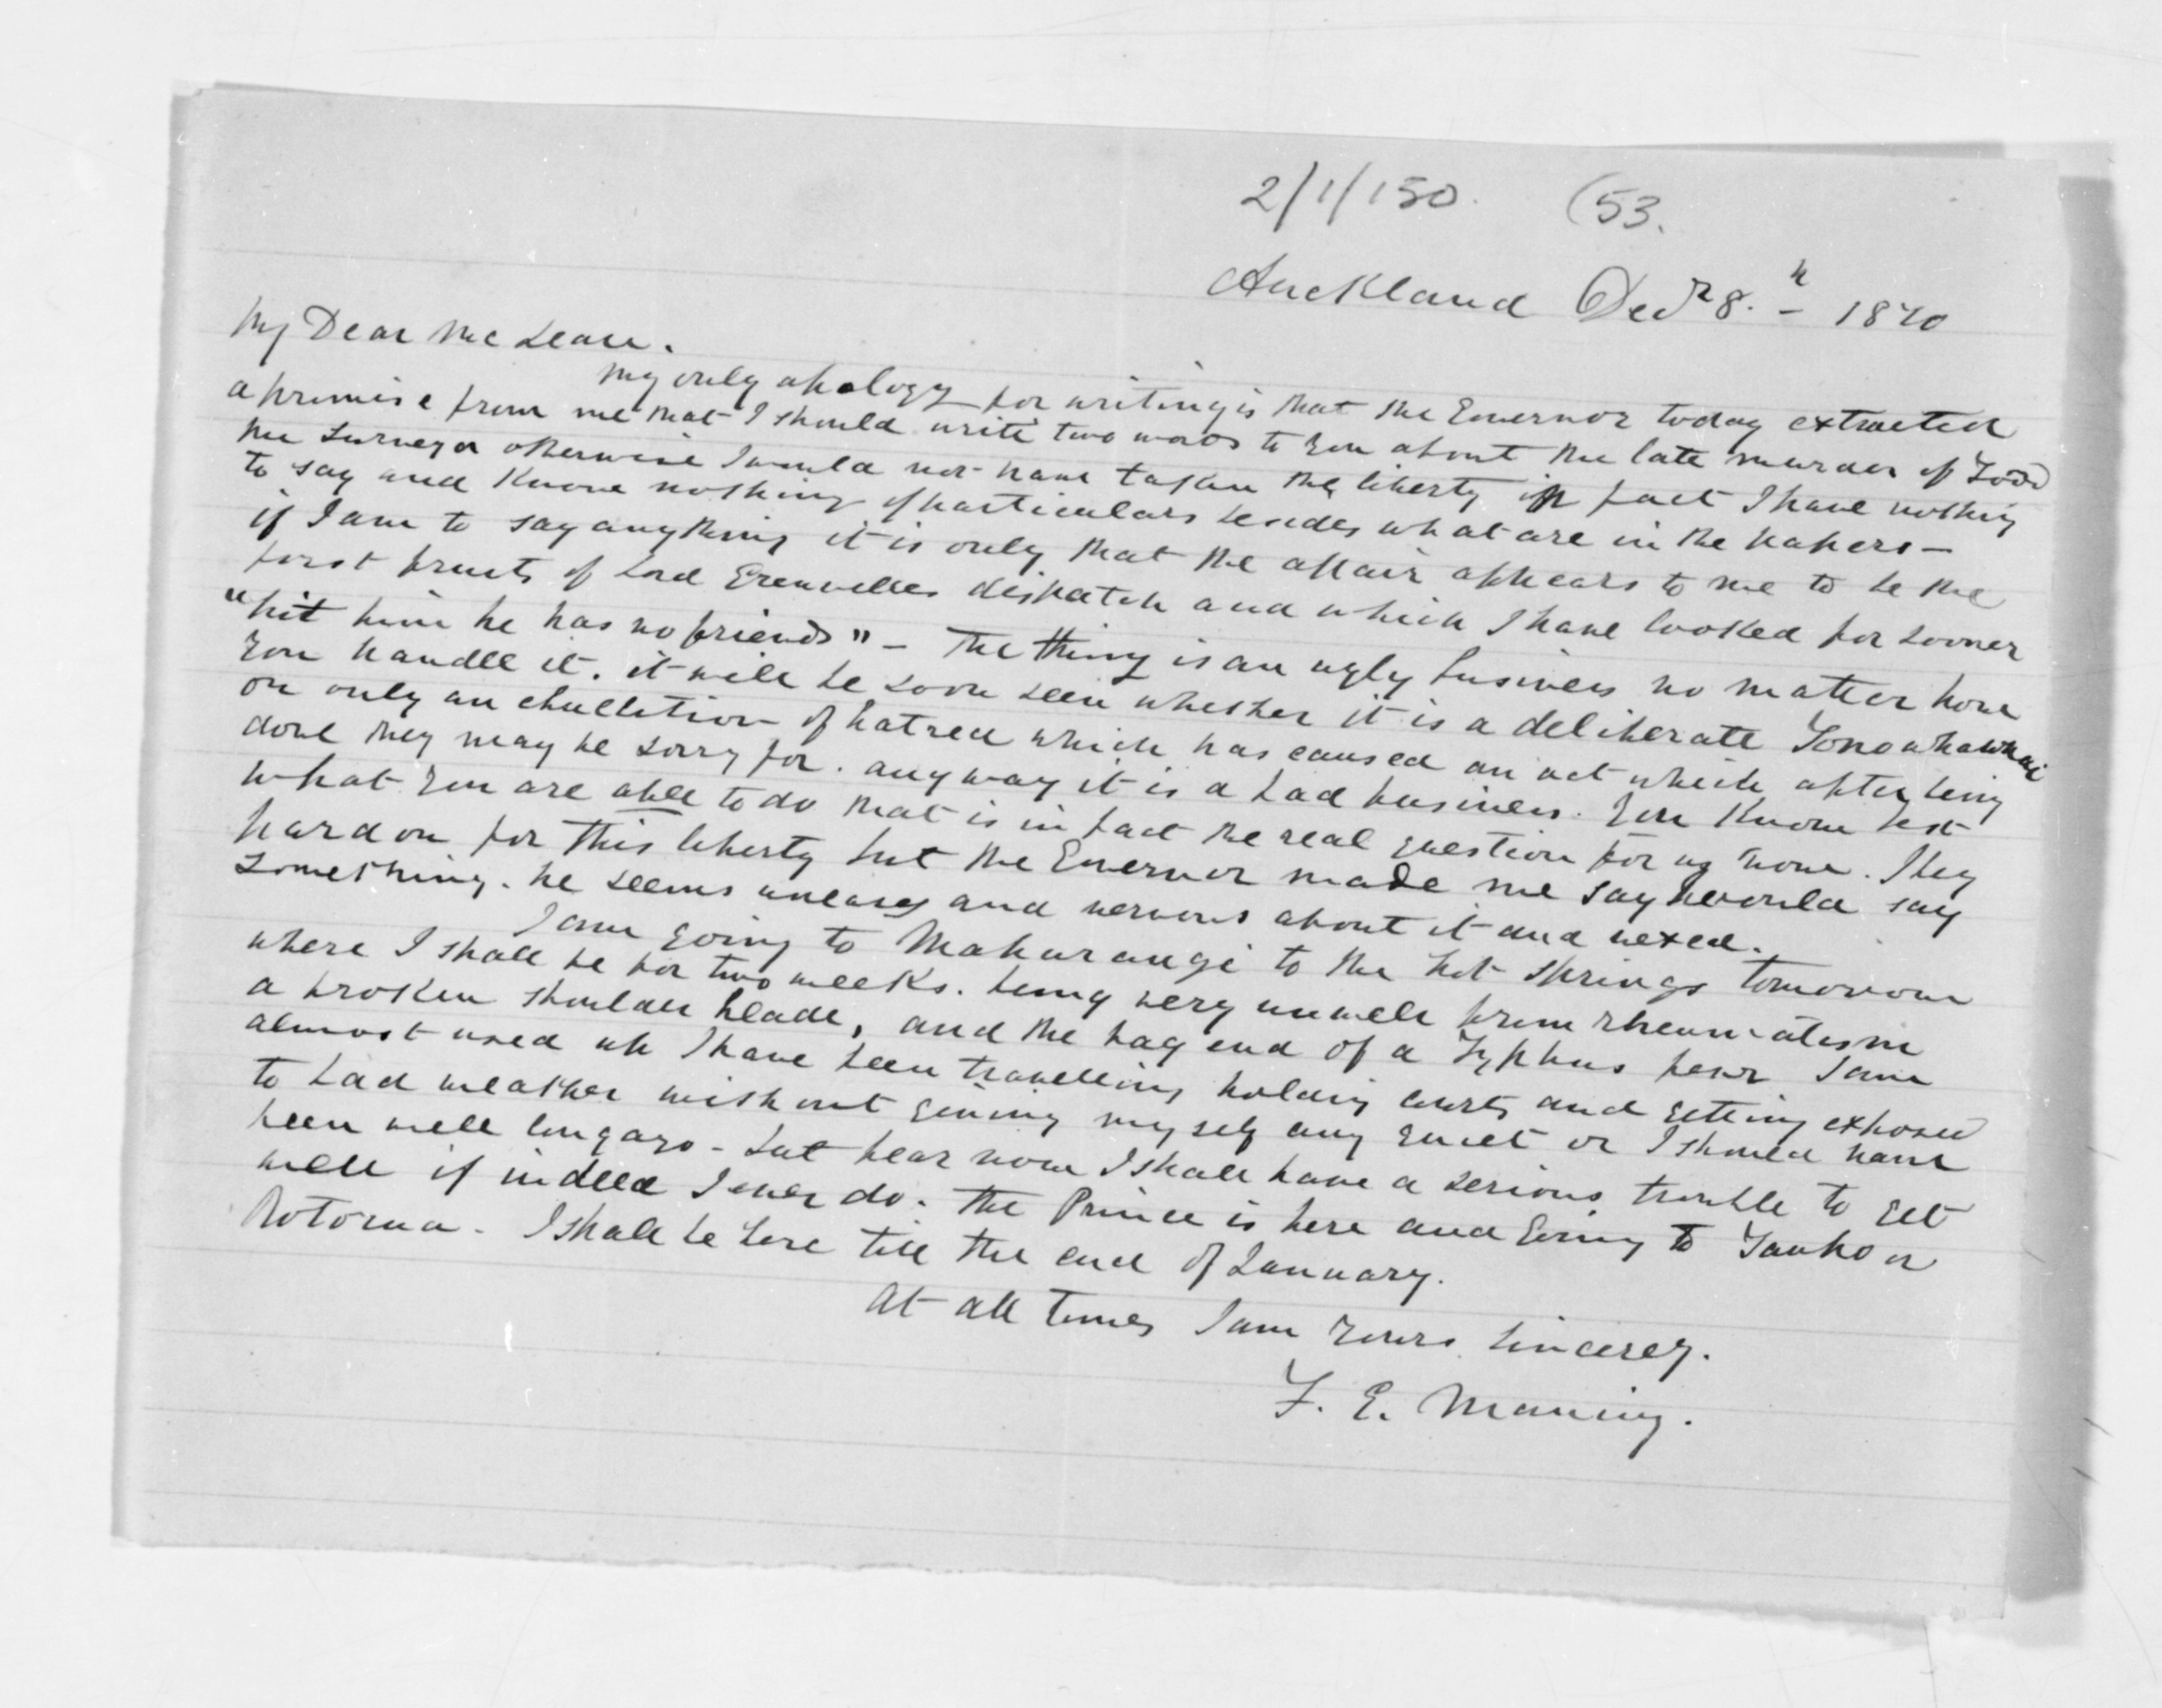 2/1/150. (53.
Auckland Decr 8.th 1870
My Dear McLean.
My only apology for writing is that the Governor today extracted
a promise from me that I should write two words to you about the late murder of Todd
the surveyor otherwise I would not have taken the liberty in fact I have nothing
to say and know nothing of particulars besides what are in the papers —
if I am to say anything it is only that the affair appears to me to be the
first fruits of Lord Grenvilles dispatch and which I have looked for sooner
"hit him he has no friends" — The thing is an ugly business no matter how
you handle it. it will be soon seen whether it is a deliberate
or only an ebullition of hatred which has caused an act which after being
done they may be sorry for. anyway it is a bad business. You know best
what you are able to do that is in fact the real question for us now. I beg
pardon for this liberty but the Governor made me say would say
something. he seems uneasy and nervous about it and vexed.
I am going to Mahurangi to the hot springs tomorrow
where I shall be for two weeks. being very unwell from rheumatism
a broken shoulder blade, and the fag end of a Typhus fever I am
almost used up I have been travelling holding courts and getting exposed
to bad weather without giving myself any quiet or I should have
been well long ago - but fear now I shall have a serious trouble to get
well if indeed I ever do. The Prince is here and going to Taupo or
Rotorua. I shall be here till the end of January.
At all times I am yours sincerely.
F. E. Maning.